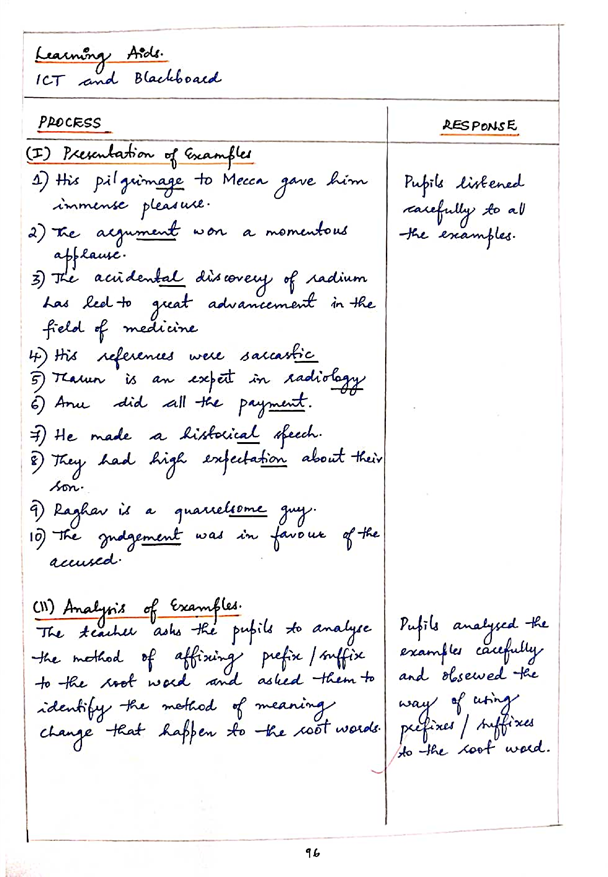 Learning Aids.
ICT and Blackboard
PROCESS
(I) Presentation of Examples
1) His pilgrimage to Mecca gave him
immense pleasure.
2) The argument won a momentous
applause.
3) The accidental discovery of radium
has led to great advancement in the
field of medicine
4) His references were sarcastic
5) Tharun is an expert in radiology
6) Anu did all the payment.
7) He made a historical speech.
8) They had high expectation about their
son.
9) Raghav is a quarrelsome guy.
10) The judgement was in favour of the
accused.
(II) Analysis of Examples.
The teacher asks the pupils to analyse
the method of affixing prefix/suffix
to the root word and asked them to
identify the method of meaning
change that happen to the root words.
RESPONSE
Pupils listened
carefully to all
the examples.
Pupils analysed the
examples carefully
and observed the
way of using
prefixes/suffixes
to the root word.
96